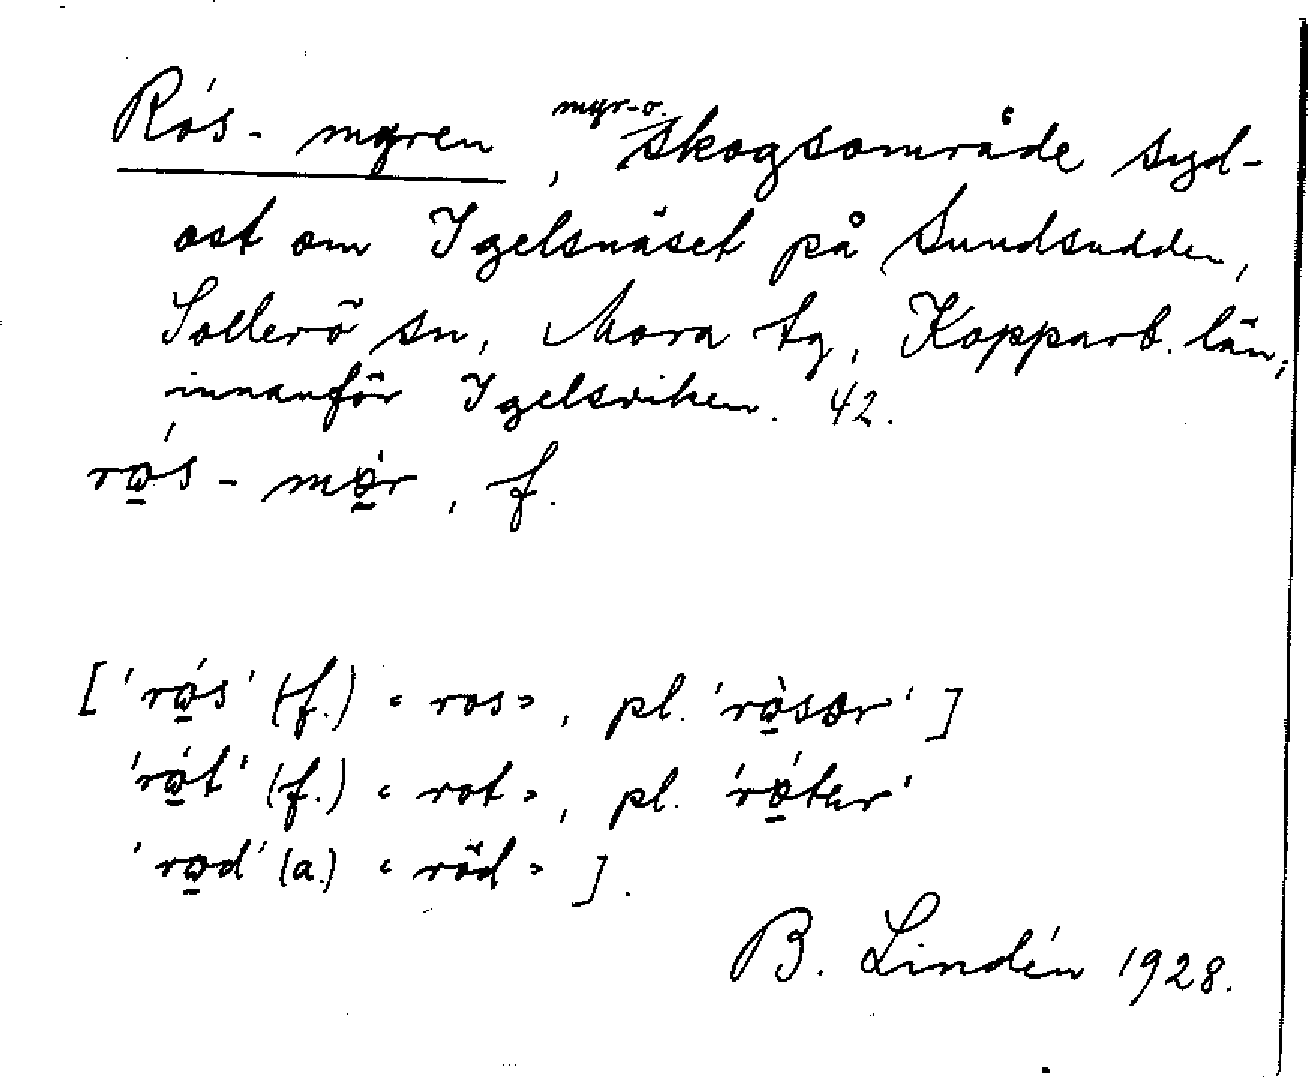 Rós-myren, myr-o. skogsområde syd-
ost om Igelsnäset på Sundsudden,
Sollerö sn, Mora tg, Kopparb. län,
innanför Igelsviken. 42.
rώ̱s - mø̱̀r, f.
['rώ̱s' (f.) «ros», pl. 'rὼ̱sær']
'rώ̱t' (f.) «rot», pl. 'rǿ̱tær'
'rω̱d' (a.) «röd»].
B. Lindén 1928.